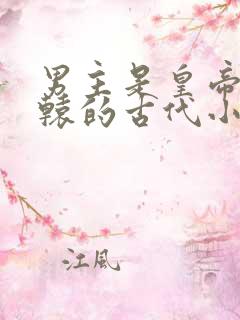 男主是皇帝
辕的古代小
江风